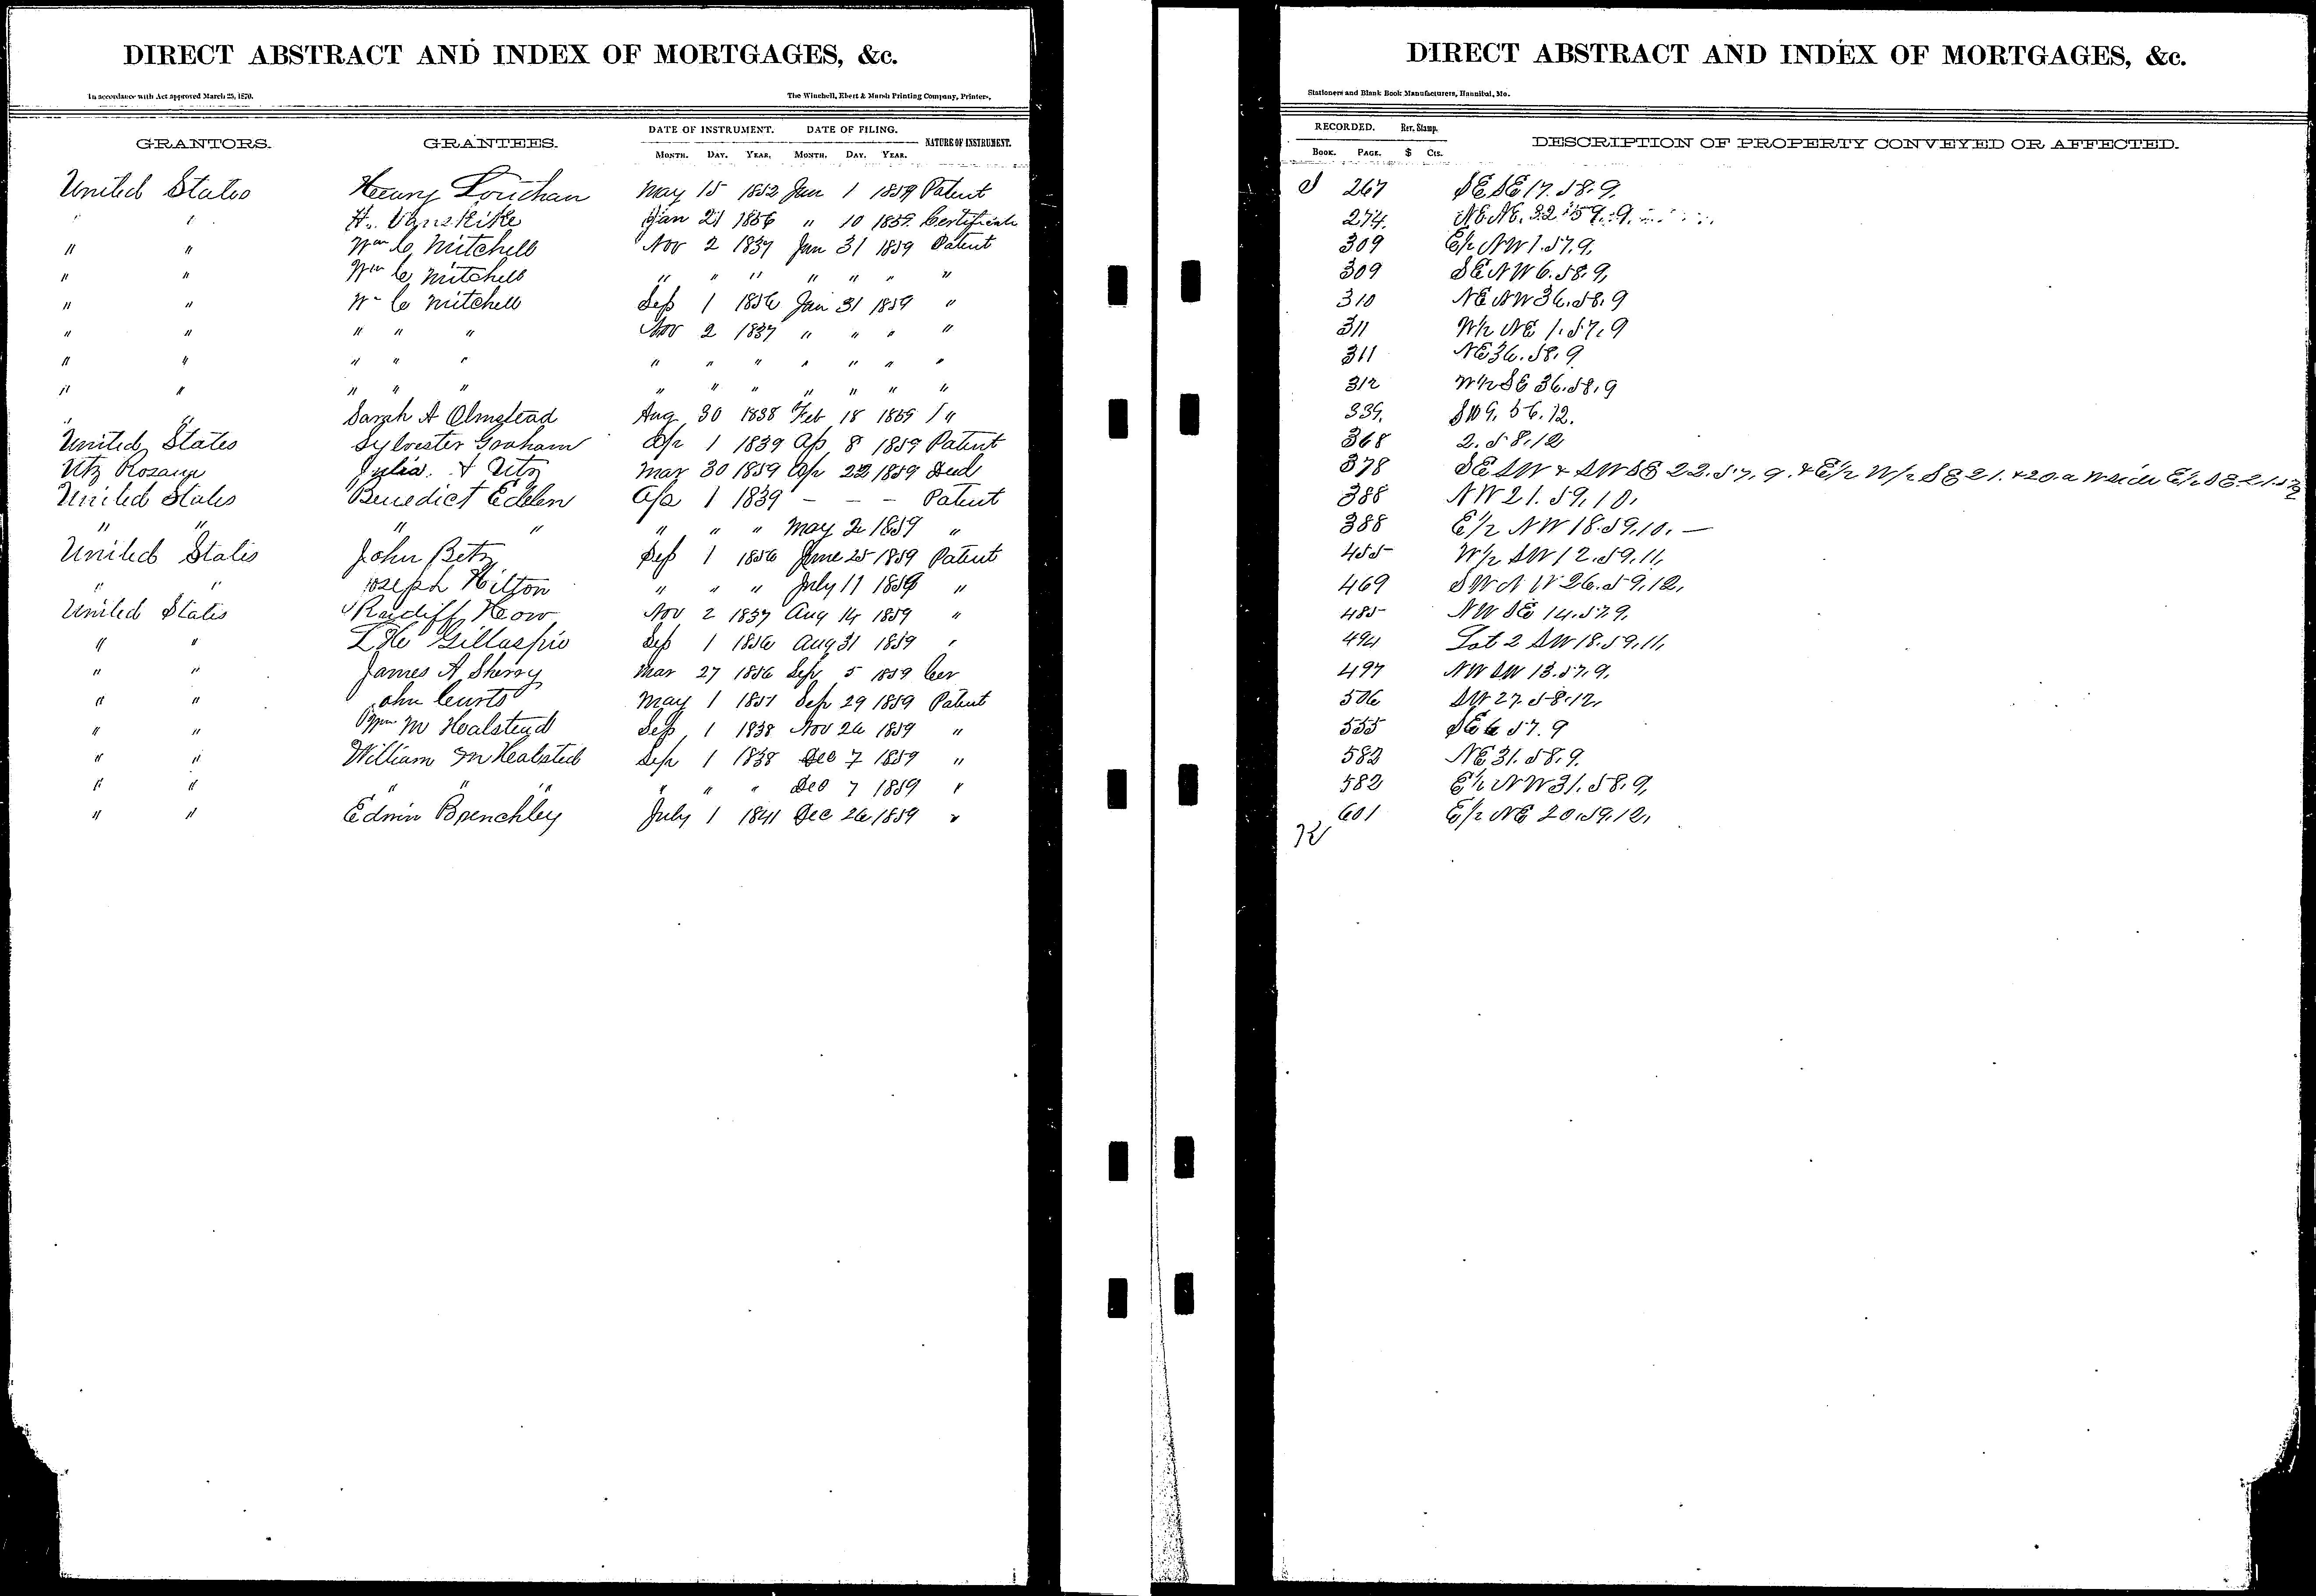 DIRECT ABSTRACT AND INDEX OF MORTGAGES, &c.
In accordance with Act approved March 25, 1870. The Winchell, Ebert & Marsh Printing Company, Printers,
GRANTORS. GRANTEES. DATE OF INSTRUMENT. DATE OF FILING. NATURE OF INSTRUMENT.
MONTH. DAY. YEAR. MONTH. DAY. YEAR.
United States Henry Louthan May 15 1852 Jan 1 1859 Patent
" " H. Vanskike Jan 21 1856 " 10 1859 Certificate
" " Wm C Mitchell Nov 2 1837 Jan 31 1859 Patent
" " Wm C Mitchell " " " " " " "
" " Wm C Mitchell Sep 1 1856 Jan 31 1859 "
" " " " " Nov 2 1837 " " " "
" " " " " " " " " " " "
" " " " " " " " " " " "
" " Sarah A Olmstead Aug 30 1838 Feb 18 1859 "
United States Sylvester Graham Ap 1 1839 Ap 8 1859 Patent
Utz Rosann Julia A Utz Mar 30 1859 Ap 22 1859 Deed
United States Benedict Edelen Ap 1 1839 - - - Patent
" " " " " " " May 2 1859 "
United States John Betz Sep 1 1856 June 25 1859 Patent
" " Joseph Hilton " " " July 11 1859 "
United States Radliff Nov 2 1837 Aug 14 1859 "
" " Gillaspie Sep 1 1856 Aug 31 1859 "
" " James A Sherry Mar 27 1856 Sep 5 1859 Cer
" " John Curts May 1 1851 Sep 29 1859 Patent
" " Wm M Healstead Sep 1 1838 Nov 26 1859 "
" " William M Healsted Sep 1 1838 Dec 7 1859 "
" " " " " " " " Dec 7 1859 "
" " Edwin Brenchley July 1 1841 Dec 26 1859 "
DIRECT ABSTRACT AND INDEX OF MORTGAGES, &c.
Stationers and Blank Book Manufacturers, Hannibal, Mo.
RECORDED. Rev. Stamp. DESCRIPTION OF PROPERTY CONVEYED OR AFFECTED.
BOOK. PAGE. $ CTS.
267 SE SE 17.58.9.
274. NE NE. 22.59.9.
309 E/2 NW 1.57.9.
309 SE NW 6.58.9,
310 NE NW 36.58.9
311 W/2 NE 1.57.9
311 NE 36.58.9
312 W/2 SE 36.58.9
339. SW 9.56.12.
368 2.58.12
378 SE SW & SW SE 22.57.9. & E/2 W/2 SE 21. & 20.a W side E/2 SE 21.57.9
388 NW 21.59.10.
388 E/2 NW 18.59.10. —
455 W/2 SW 12.59.11,
469 SW NW 26.59.12,
485 NW SE 14.57.9.
494 Lot 2 SW 18.59.11,
497 NW SW 13.57.9.
506 SW 27.58.12,
555 SE 6 57.9
582 NE 31.58.9.
582 E/2 NW 31.58.9,
601 E/2 NE 20.59.12,